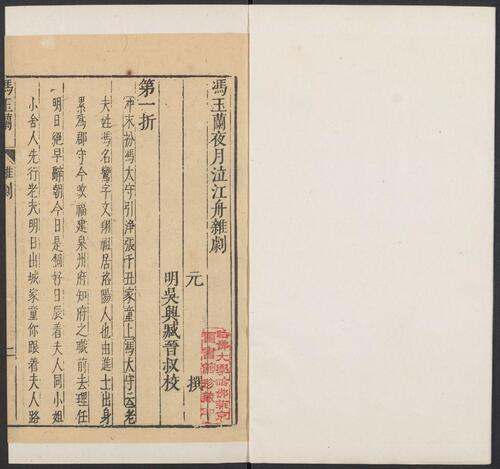 馮玉蘭夜月泣江舟雜劇
元 撰
明吳興臧晉叔校
第一折
冲末扮馮太守引淨張千丑家童上馮太守云老
夫姓馮名鸞字文翔祖居洛陽人也由進士出身
累為郡守今改福建泉州府知府之職前去理任
明日絕早辭朝今日是箇好日辰着夫人同小姐
小舍人先行老夫明日出城家童你跟着夫人路
馮玉蘭
雜劇
一